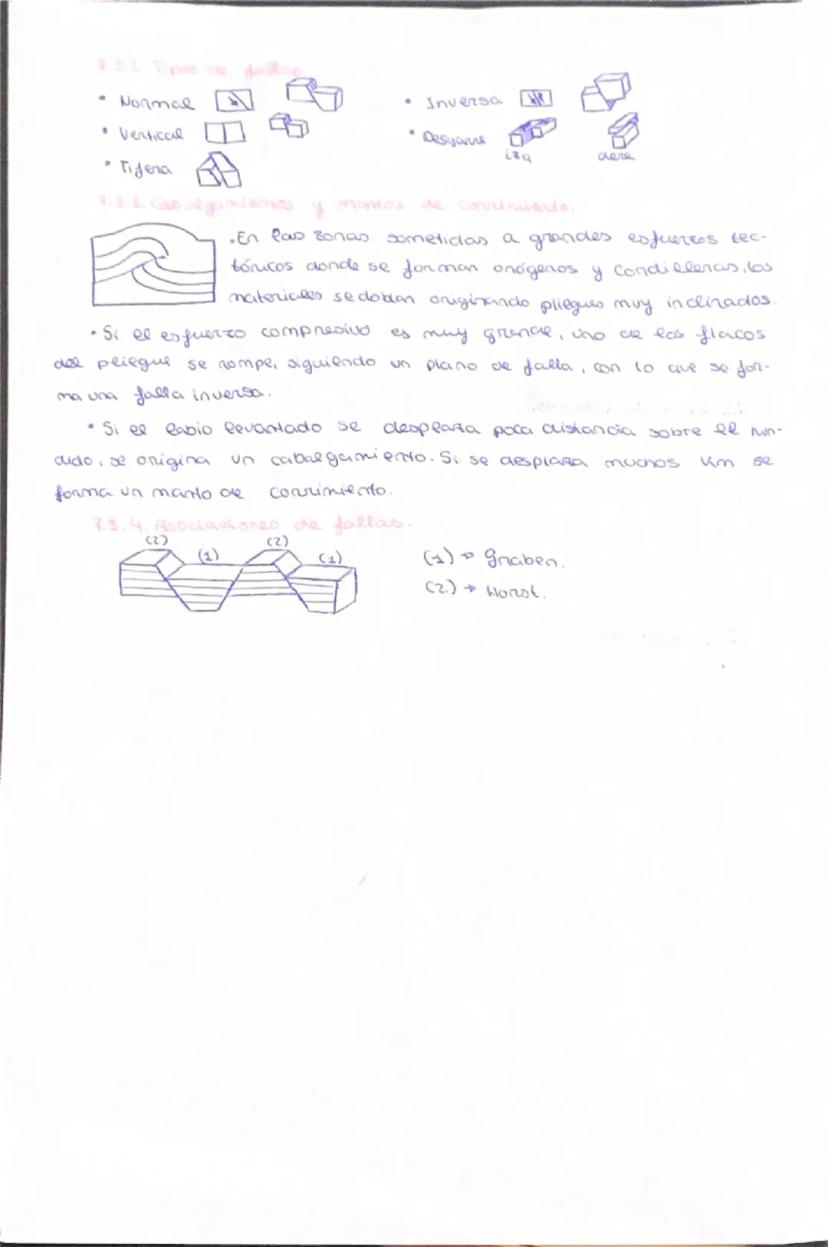 7.3.2. Tipos de fallas.
• Normal • Inversa
• Vertical • Desgarre
izq dere
• Tijera
7.3.3. Cabalgamientos y mantos de corrimiento.
• En las zonas sometidas a grandes esfuerzos tec-
tónicos donde se forman orógenos y cordilleras, los
materiales se doblan originando pliegues muy inclinados.
• Si el esfuerzo compresivo es muy grande, uno de los flacos
del pliegue se rompe, siguiendo un plano de falla, con lo que se for-
ma una falla inversa.
• Si el labio levantado se desplaza poca distancia sobre el hun-
dido, se origina un cabalgamiento. Si se desplaza muchos km se
forma un manto de corrimiento.
7.3.4. Asociaciones de fallas.
(2) (1) (2) (1)
(1) → Graben.
(2) → Horst.